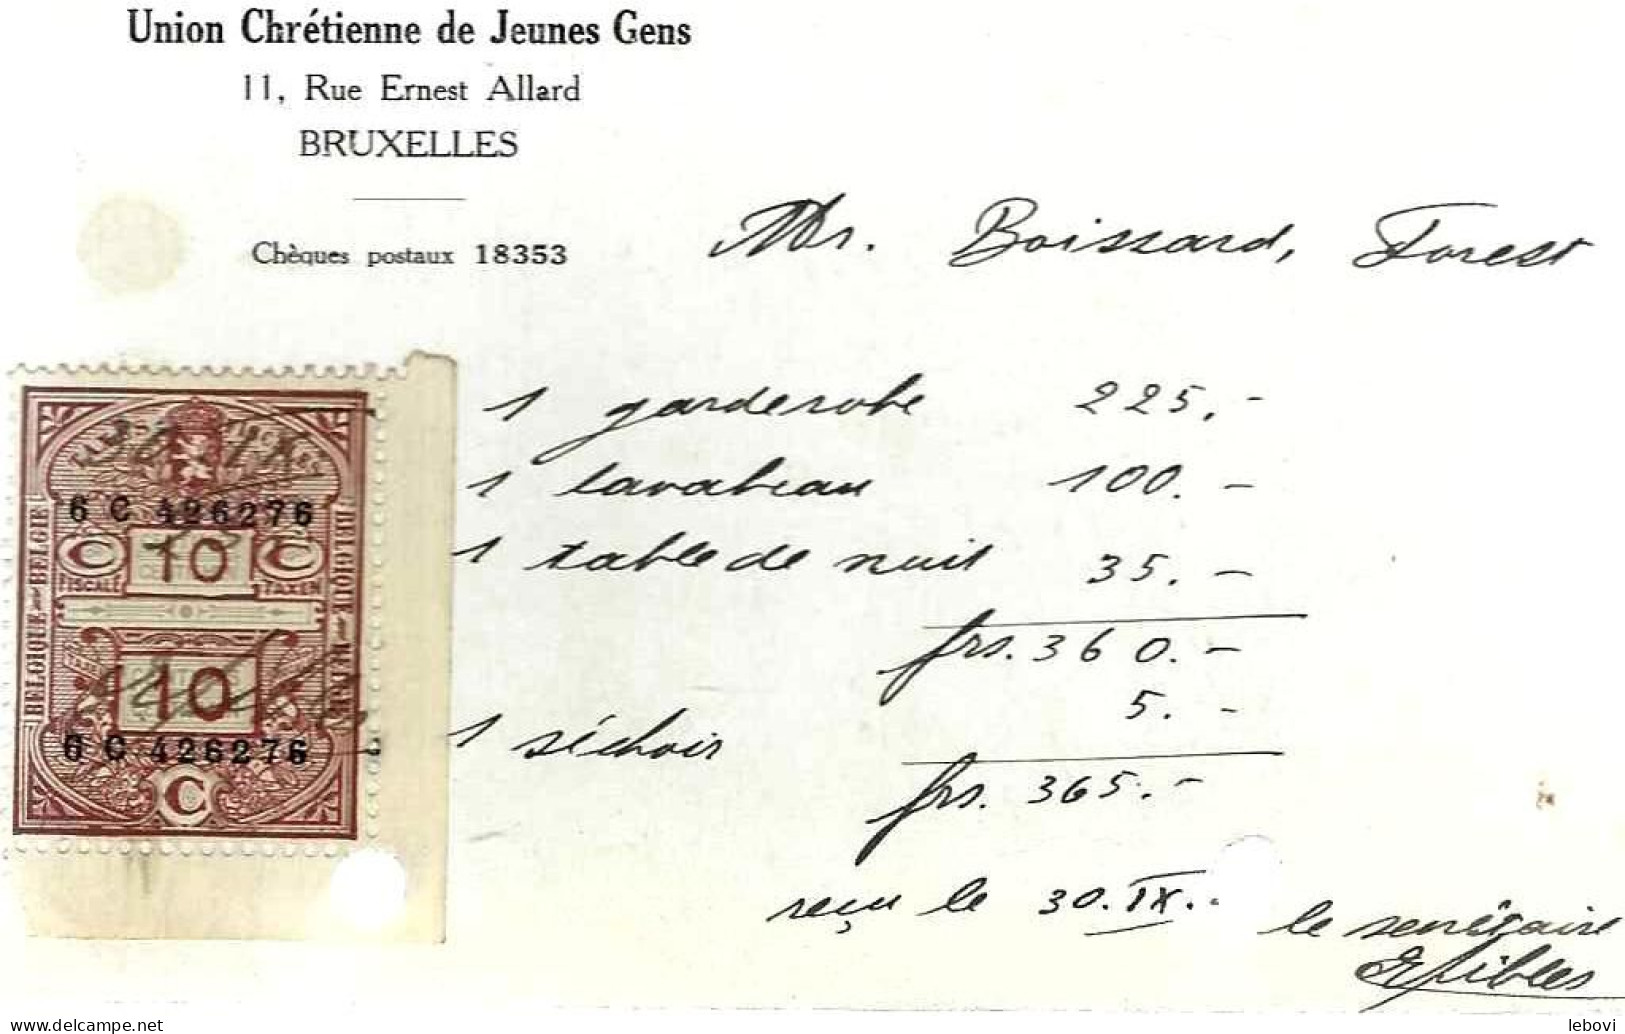 Union Chrétienne de Jeunes Gens
11, Rue Ernest Allard
BRUXELLES
Chèques postaux 18353
Mr. Boissard, Forest
1 garderobe 225.-
1 lavabeau 100.-
1 table de nuit 35.-
frs. 360.-
1 séchoir 5.-
frs. 365.-
reçu le 30.IX.-
le secrétaire
6 C 426276
C 10 C
FISCALE TAXEN
BELGIQUE BELGIE
BELGIQUE BELGIE
10
6 C 426276
C
lebovi
delcampe.net